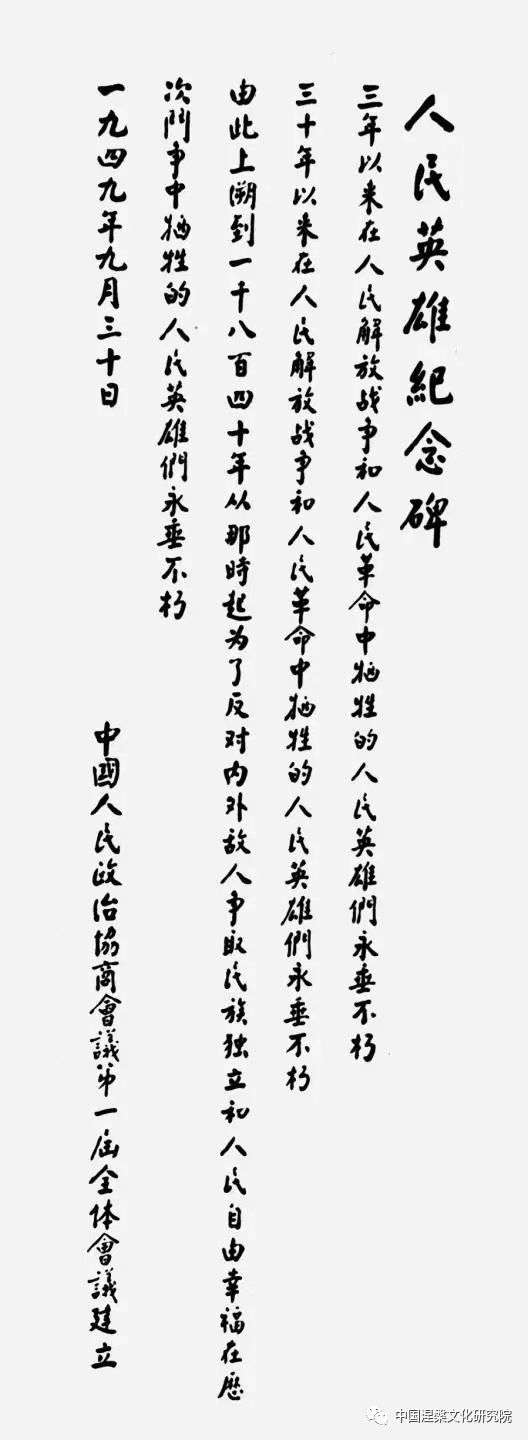 人民英雄紀念碑
三年以来在人民解放战争和人民革命中牺牲的人民英雄們永垂不朽
三十年以来在人民解放战争和人民革命中牺牲的人民英雄們永垂不朽
由此上溯到一千八百四十年从那時起为了反对内外敌人争取民族独立和人民自由幸福在歷
次鬥争中牺牲的人民英雄們永垂不朽
一九四九年九月三十日
中國人民政治協商會議第一届全体會議建立
中国涅槃文化研究院